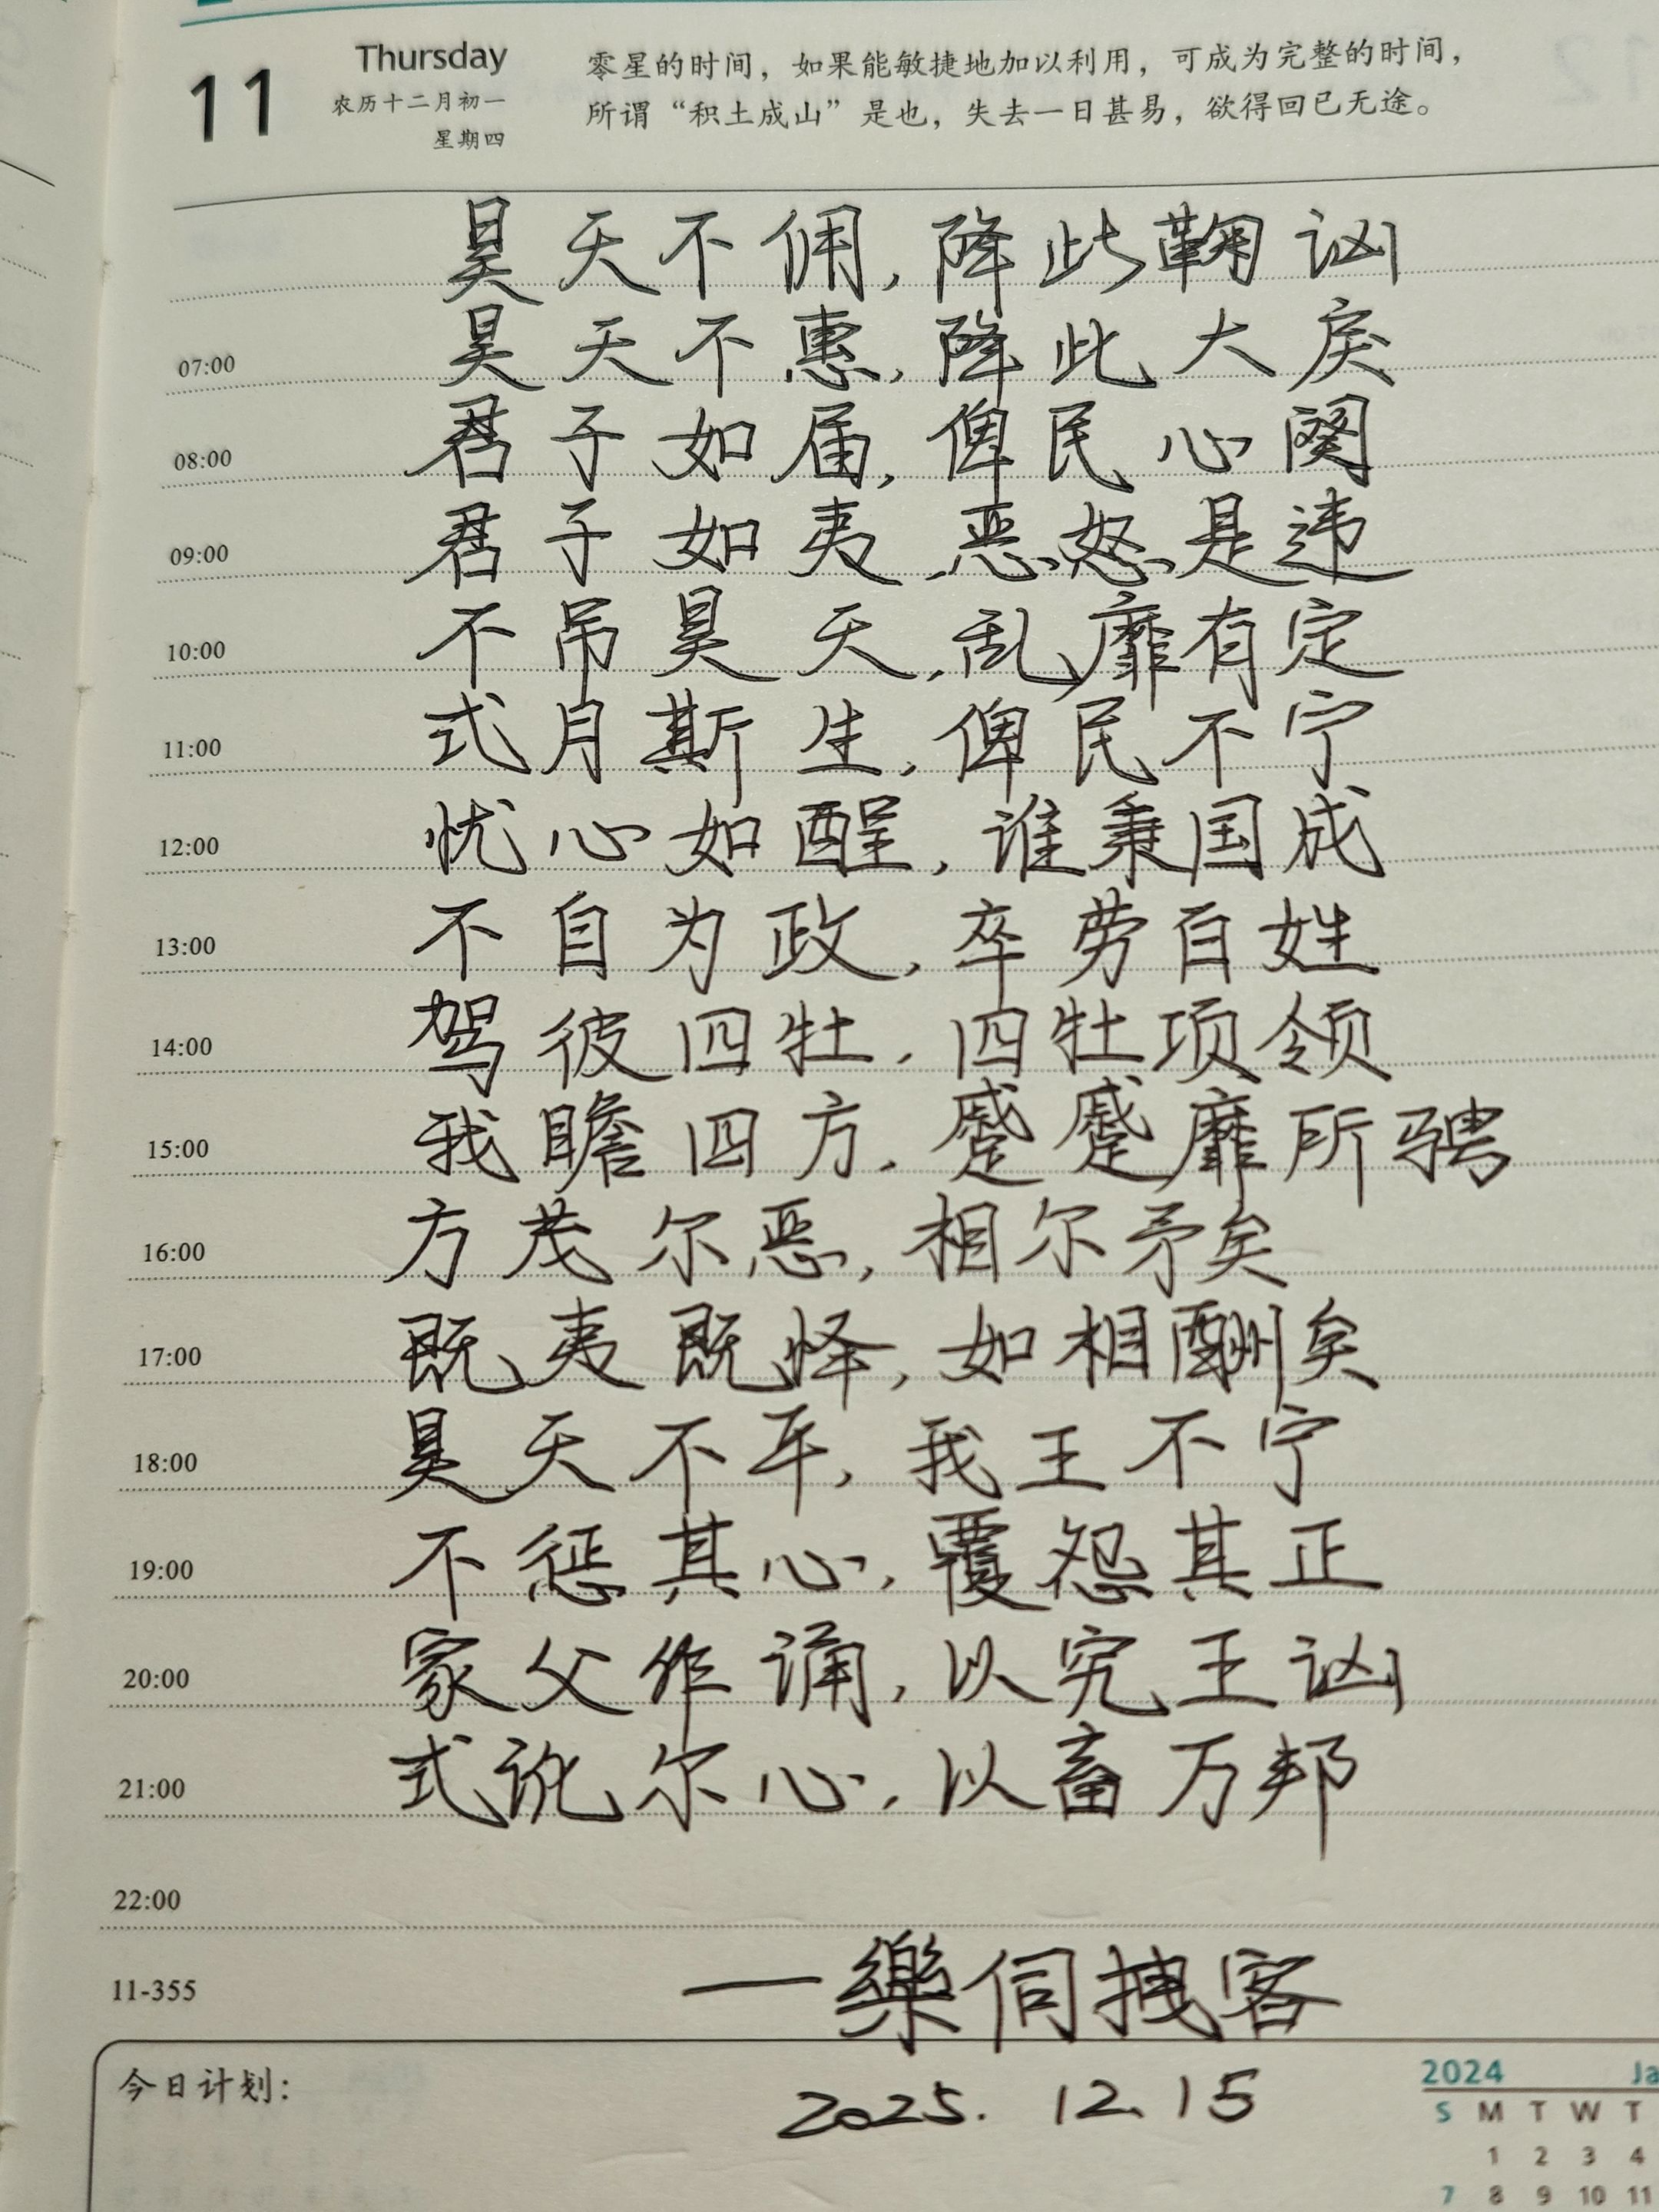 11
Thursday
农历十二月初一
星期四
零星的时间，如果能敏捷地加以利用，可成为完整的时间，
所谓“积土成山”是也，失去一日甚易，欲得回已无途。
昊天不佣，降此鞠讻
07:00 昊天不惠，降此大戾
08:00 君子如届，俾民心阕
09:00 君子如夷，恶怒是违
10:00 不吊昊天，乱靡有定
11:00 式月斯生，俾民不宁
12:00 忧心如酲，谁秉国成
13:00 不自为政，卒劳百姓
14:00 驾彼四牡，四牡项领
15:00 我瞻四方，蹙蹙靡所骋
16:00 方茂尔恶，相尔矛矣
17:00 既夷既怿，如相酬矣
18:00 昊天不平，我王不宁
19:00 不惩其心，覆怨其正
20:00 家父作诵，以究王讻
21:00 式讹尔心，以畜万邦
22:00
11-355 —樂伺拽客
2025.12.15
今日计划：
2024 Ja
S M T W T
1 2 3 4
7 8 9 10 11